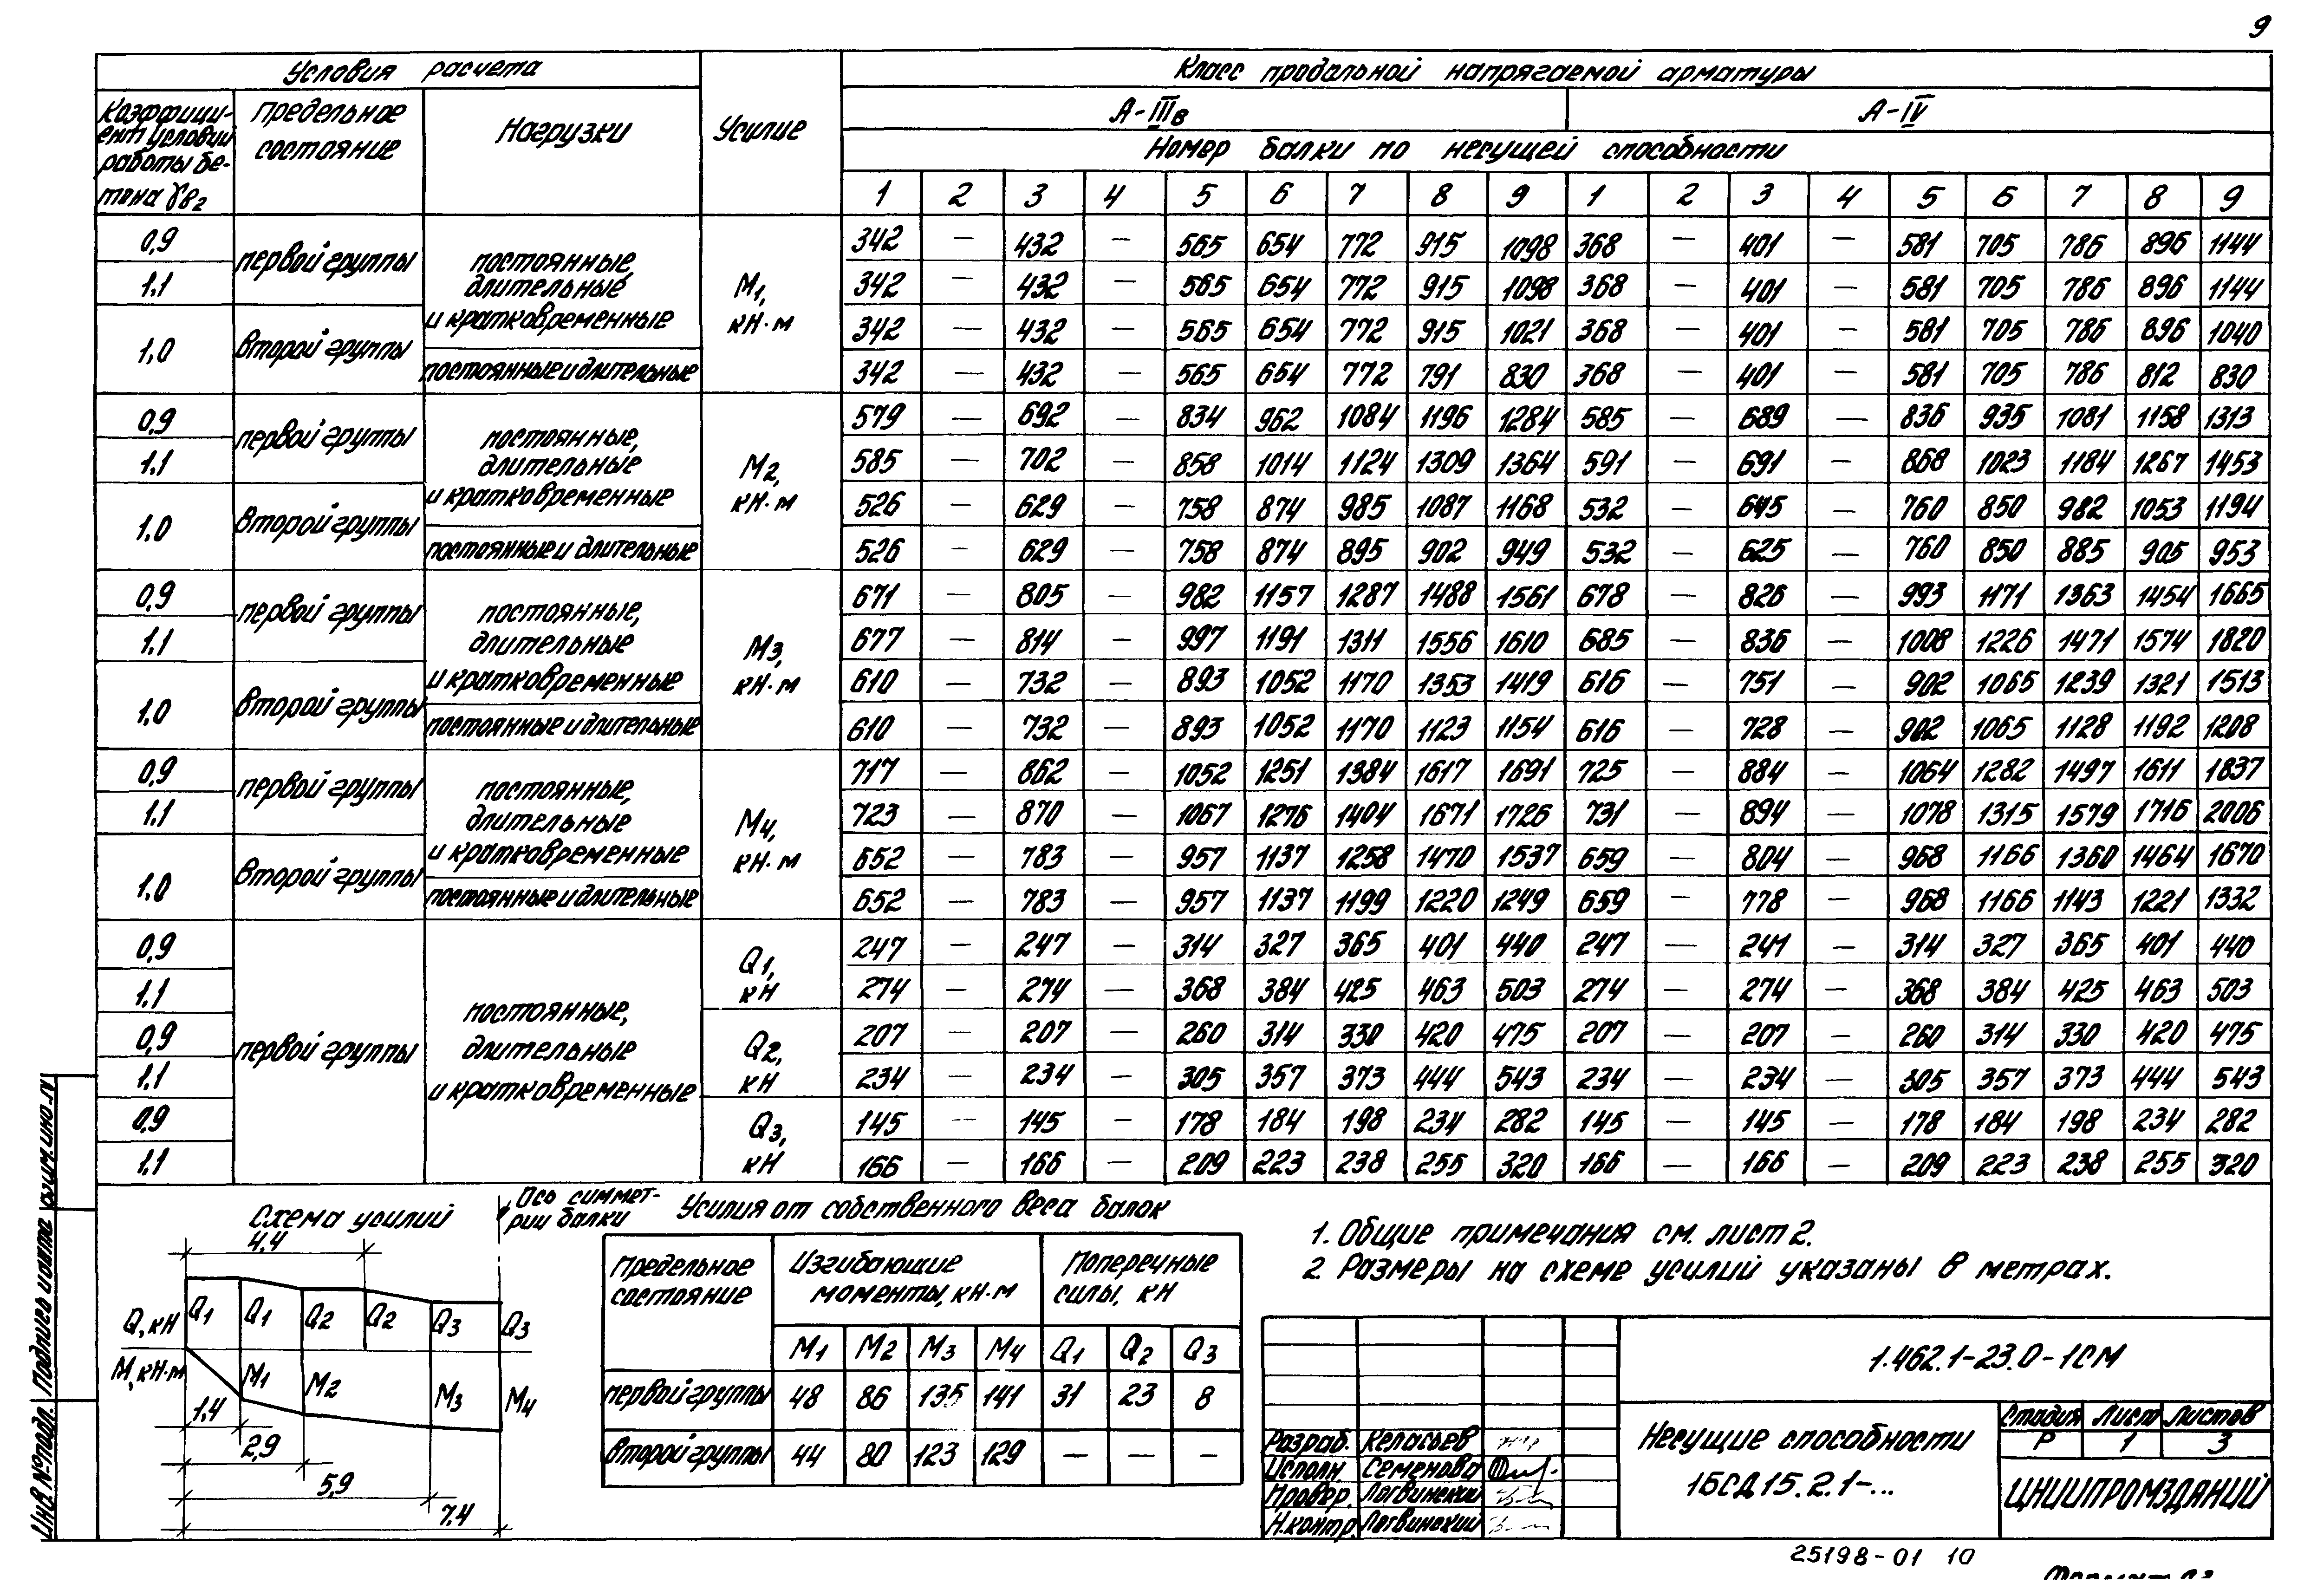 9
Условия расчета
Усилие
Класс продольной напрягаемой арматуры
Коэффици-
ент условий
работы бе-
тона γв2
Предельное
состояние
Нагрузки
А-IIIв
А-IV
Номер балки по несущей способности
1 2 3 4 5 6 7 8 9 1 2 3 4 5 6 7 8 9
0,9 первой группы постоянные, длительные и кратковременные М1, кН·м 342 — 432 — 565 654 772 915 1098 368 — 401 — 581 705 786 896 1144
1.1 342 — 432 — 565 654 772 915 1098 368 — 401 — 581 705 786 896 1144
1,0 второй группы 342 — 432 — 565 654 772 915 1021 368 — 401 — 581 705 786 896 1040
постоянные и длительные 342 — 432 — 565 654 772 791 830 368 — 401 — 581 705 786 812 830
0,9 первой группы постоянные, длительные и кратковременные М2, кН·м 579 — 692 — 834 962 1084 1196 1284 585 — 689 — 836 935 1081 1158 1313
1.1 585 — 702 — 858 1014 1124 1309 1364 591 — 691 — 868 1023 1184 1267 1453
1.0 второй группы 526 — 629 — 758 874 985 1087 1168 532 — — 760 850 982 1053 1194
постоянные и длительные 526 — 629 — 758 874 895 902 949 532 — 625 — 760 850 885 905 953
0,9 первой группы постоянные, длительные и кратковременные М3, кН·м 671 — 805 — 982 1157 1287 1488 1561 678 — 826 — 993 1171 1363 1454 1665
1.1 677 — 814 — 997 1191 1311 1556 1610 685 — 836 — 1008 1226 1471 1574 1820
1.0 второй группы 610 — 732 — 893 1052 1170 1353 1419 616 — 751 — 902 1065 1239 1321 1513
постоянные и длительные 610 — 732 — 893 1052 1170 1123 1154 616 — 728 — 902 1065 1128 1192 1208
0,9 первой группы постоянные, длительные и кратковременные М4, кН·м 717 — 862 — 1052 1251 1384 1617 1691 725 — 884 — 1064 1282 1497 1611 1837
1.1 723 — 870 — 1067 1276 1404 1671 1726 731 — 894 — 1078 1315 1579 1716 2006
1.0 второй группы 652 — 783 — 957 1137 1258 1470 1537 659 — 804 — 968 1166 1360 1464 1670
постоянные и длительные 652 — 783 — 957 1137 1199 1220 1249 659 — 778 — 968 1166 1143 1221 1332
0,9 первой группы постоянные, длительные и кратковременные Q1, кН 247 — 247 — 314 327 365 401 440 247 — 247 — 314 327 365 401 440
1.1 274 — 274 — 368 384 425 463 503 274 — 274 — 368 384 425 463 503
0,9 Q2, кН 207 — 207 — 260 314 330 420 475 207 — 207 — 260 314 330 420 475
1.1 234 — 234 — 305 357 373 444 543 234 — 234 — 305 357 373 444 543
0,9 Q3, кН 145 — 145 — 178 184 198 234 282 145 — 145 — 178 184 198 234 282
1.1 166 — 166 — 209 223 238 255 320 166 — 166 — 209 223 238 255 320
Схема усилий
Ось симмет-
рии балки
4,4
Q, кН Q1 Q1 Q2 Q2 Q3 Q3
М, кН·м М1 М2 М3 М4
1,4
2,9
5,9
7,4
Усилия от собственного веса балок
Предельное состояние
Изгибающие моменты, кН·м
Поперечные силы, кН
М1 М2 М3 М4 Q1 Q2 Q3
первой группы 48 86 135 141 31 23 8
второй группы 44 80 123 129 — — —
1. Общие примечания см. лист 2.
2. Размеры на схеме усилий указаны в метрах.
1.462.1-23.0-1СМ
Несущие способности
1БСД15.2.1-...
Стадия Лист Листов
Р 1 3
ЦНИИПРОМЗДАНИЙ
Разраб. Келасьев
Исполн Семенова
Провер. Логвинский
Н.контр. Логвинский
Инв.№подл. Подпись и дата Взам.инв.N
25198-01 10